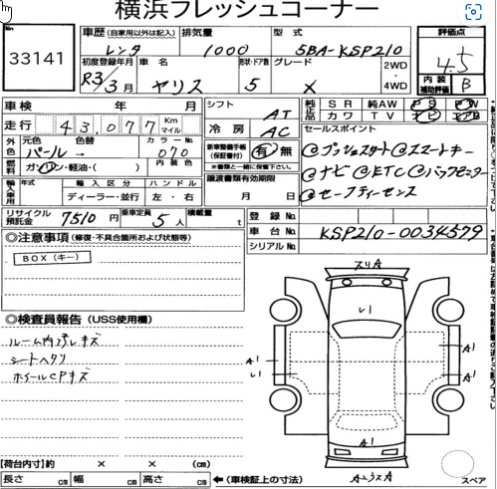 横浜フレッシュコーナー
33141
車歴 (自家用以外は記入) 排気量 型式 評価点
レンタ 1000 5BA-KSP210 4.5
初度登録年月 車名 形状・ドア数 グレード 2WD・4WD 内装補助評価 B
R3/3月 ヤリス 5 X
車検 年 月 シフト AT 純正品 SR 純AW PS PW
カワ TV
走行 43,077 Km マイル 冷房 AC セールスポイント
外色 元色 色替 カラーNo. 新車整備手帳(保証書付) 有・無
パール 070 @プッシュスタート@スマートキー
燃料 ガソリン・軽油・( ) 内装色 @ナビ@ETC@バックモニター
輸入車用 年式 輸入区分 ハンドル 譲渡書類有効期限 @セーフティーセンス
ディーラー・並行 左・右 月 日
リサイクル預託金 7510円 乗車定員 5人 積載量 t 登録No.
車台No. KSP210-0034579
シリアルNo.
◎注意事項 (修復・不具合箇所および状態等)
BOX(キー)
◎検査員報告 (USS使用欄)
ルーム内汚レキズ
シートヘタリ
ホイールCPキズ
スリA
レ1
A1
A1
レ1
A1
A1
A1
スペア
【荷台内寸】約 × × (cm)
長さ cm 幅 cm 高さ cm ←(車検証上の寸法)